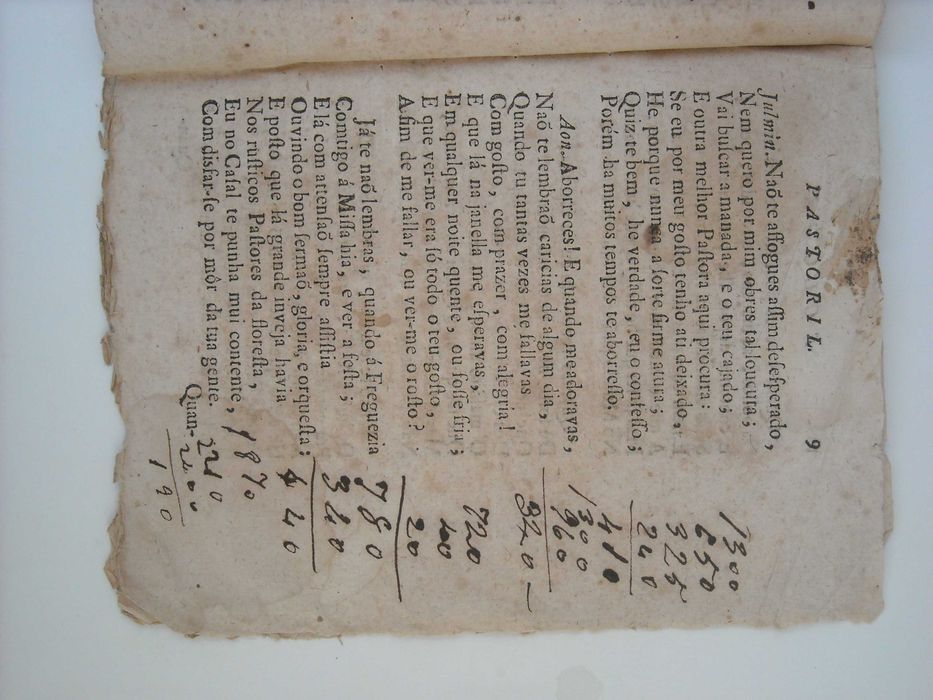 PASTORIL. 9
Julmin. Naõ te affogues aſſim deſeſperado,
Nem quero por mim obres tal loucura;
Vai buſcar a manada, e o teu cajado;
E outra melhor Paſtora aqui procura:
Se eu por meu goſto tenho a tu deixado,
He porque nunca a ſorte firme atura;
Quiz-te bem, he verdade, eu o confeſſo,
Porém ha muitos tempos te aborreſſo.
Aon. Aborreces! E quando me adoravas,
Naõ te lembraõ caricias de algum dia,
Quando tu tantas vezes me fallavas
Com goſto, com prazer, com alegria!
E que lá na janella me eſperavas,
Em qualquer noite quente, ou foſſe fria;
E que ver-me era ſó todo o teu goſto,
A fim de me fallar, ou ver-me o roſto?
Já te naõ lembras, quando á Freguezia
Comtigo á Miſſa hia, e ver a feſta;
E lá com attenſaõ ſempre aſſiſtia
Ouvindo o bom ſermaõ, gloria, e orqueſta:
E poſto que lá grande inveja havia
Nos ruſticos Paſtores da floreſta,
Eu no Caſal te punha mui contente,
Com disfar-ſe por môr da tua gente.
Quan-
1300
650
325
240
410
1300
960
340
720
400
20
780
340
440
1870
210
200
190